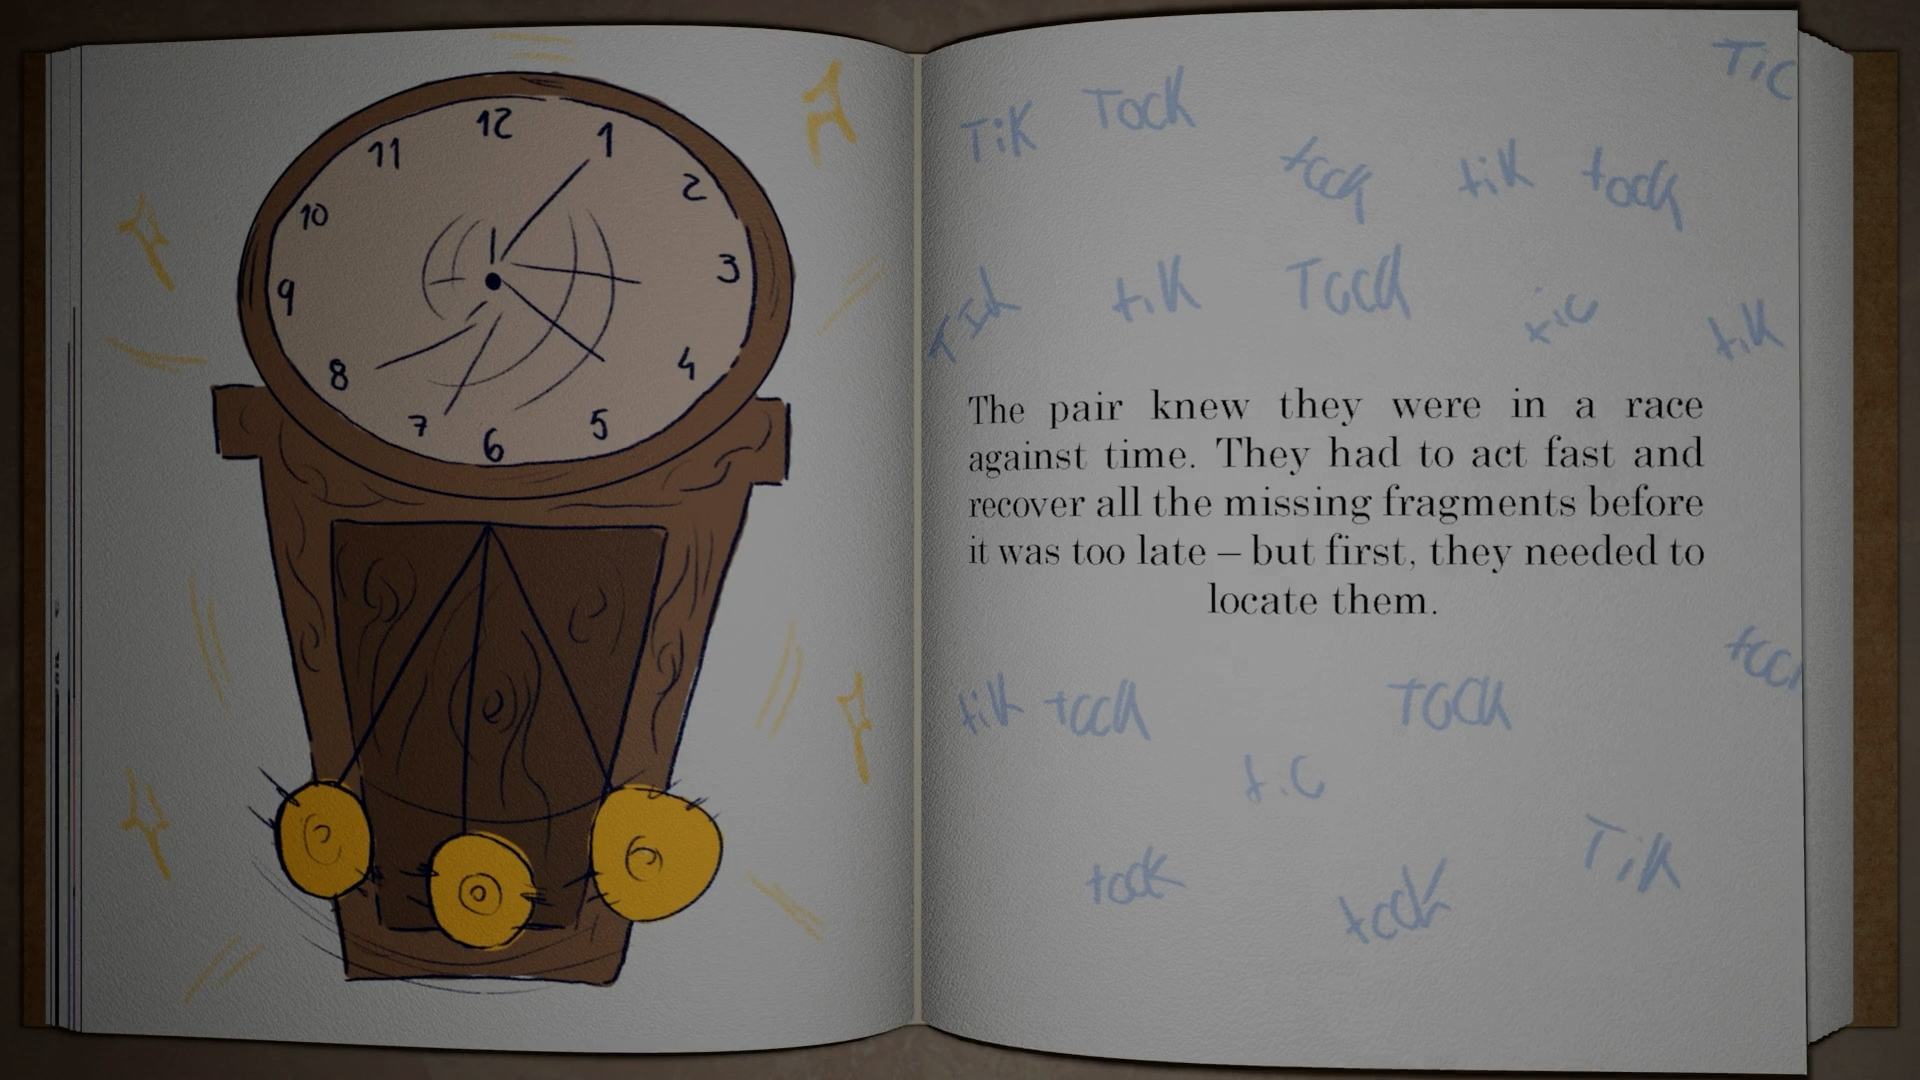 12
11
1
10
2
9
3
8
4
7
5
6
TiC
TiK TocK
tock tiK tock
tiK TocK tic tiK
The pair knew they were in a race
against time. They had to act fast and
recover all the missing fragments before
it was too late – but first, they needed to
locate them.
tiK tock TOCK
tiC
tocK tocK TiK